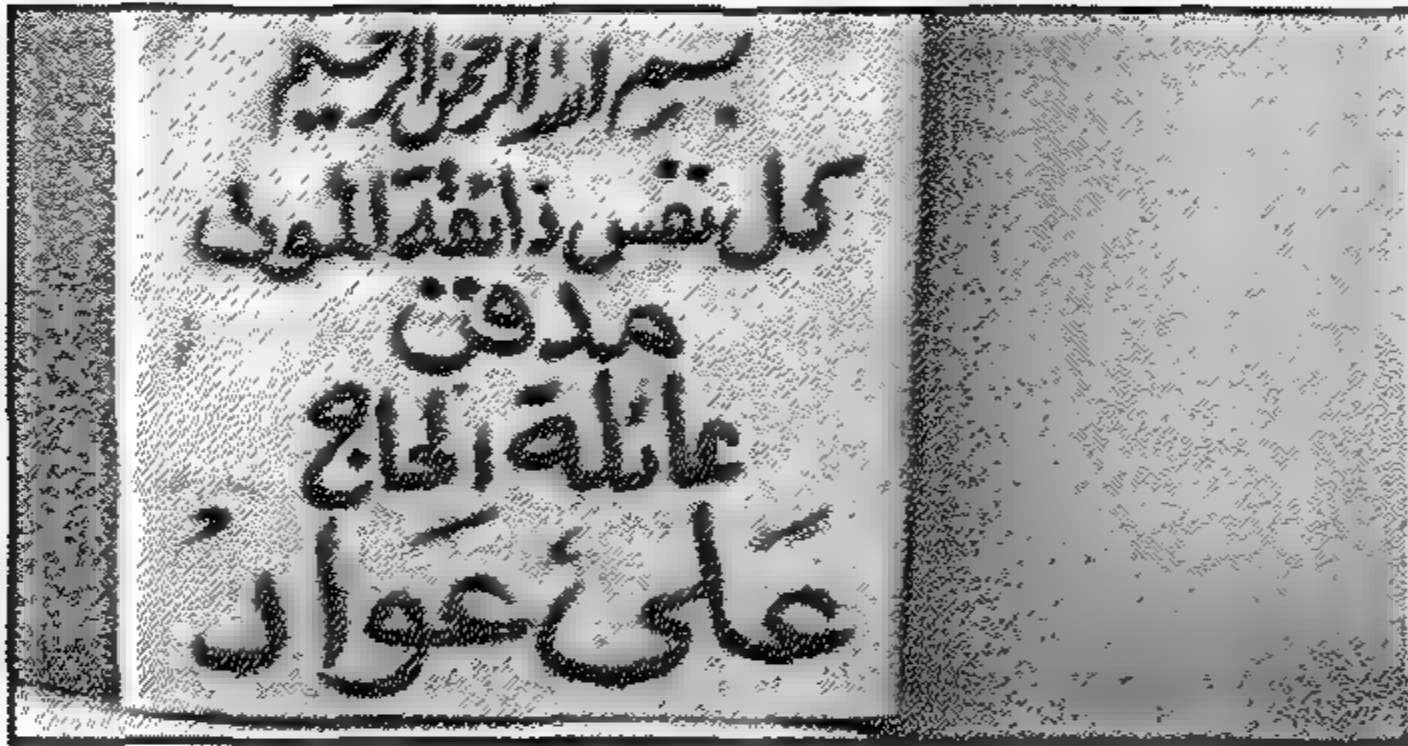 بسم الله الرحمن الرحيم
كل نفس ذائقة الموت
مدفن
عائلة الحاج
عَلى عَواد